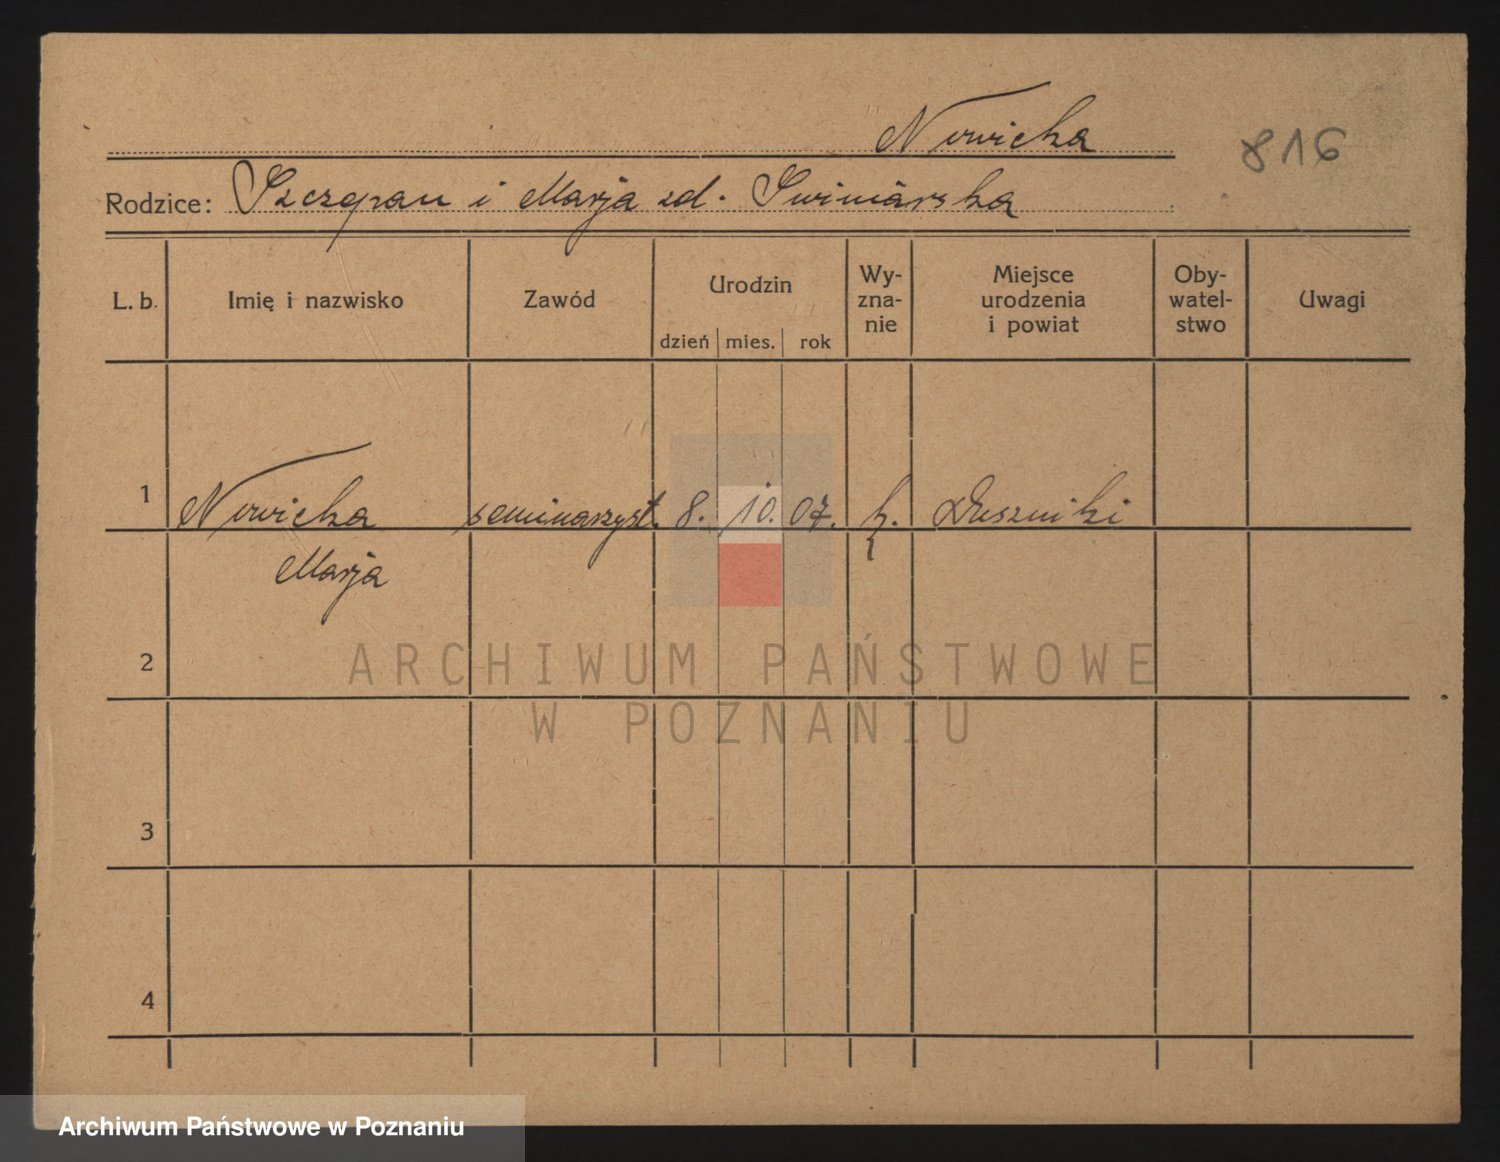 Nowicka
816
Rodzice: Szczepan i Marja zd. Swinarska
L. b.
Imię i nazwisko
Zawód
Urodzin
dzień mies. rok
Wy-
zna-
nie
Miejsce
urodzenia
i powiat
Oby-
watel-
stwo
Uwagi
1 Nowicka seminarzyst. 8. 10. 07. k. Duszniki
Marja
2
3
4
ARCHIWUM PAŃSTWOWE
W POZNANIU
Archiwum Państwowe w Poznaniu